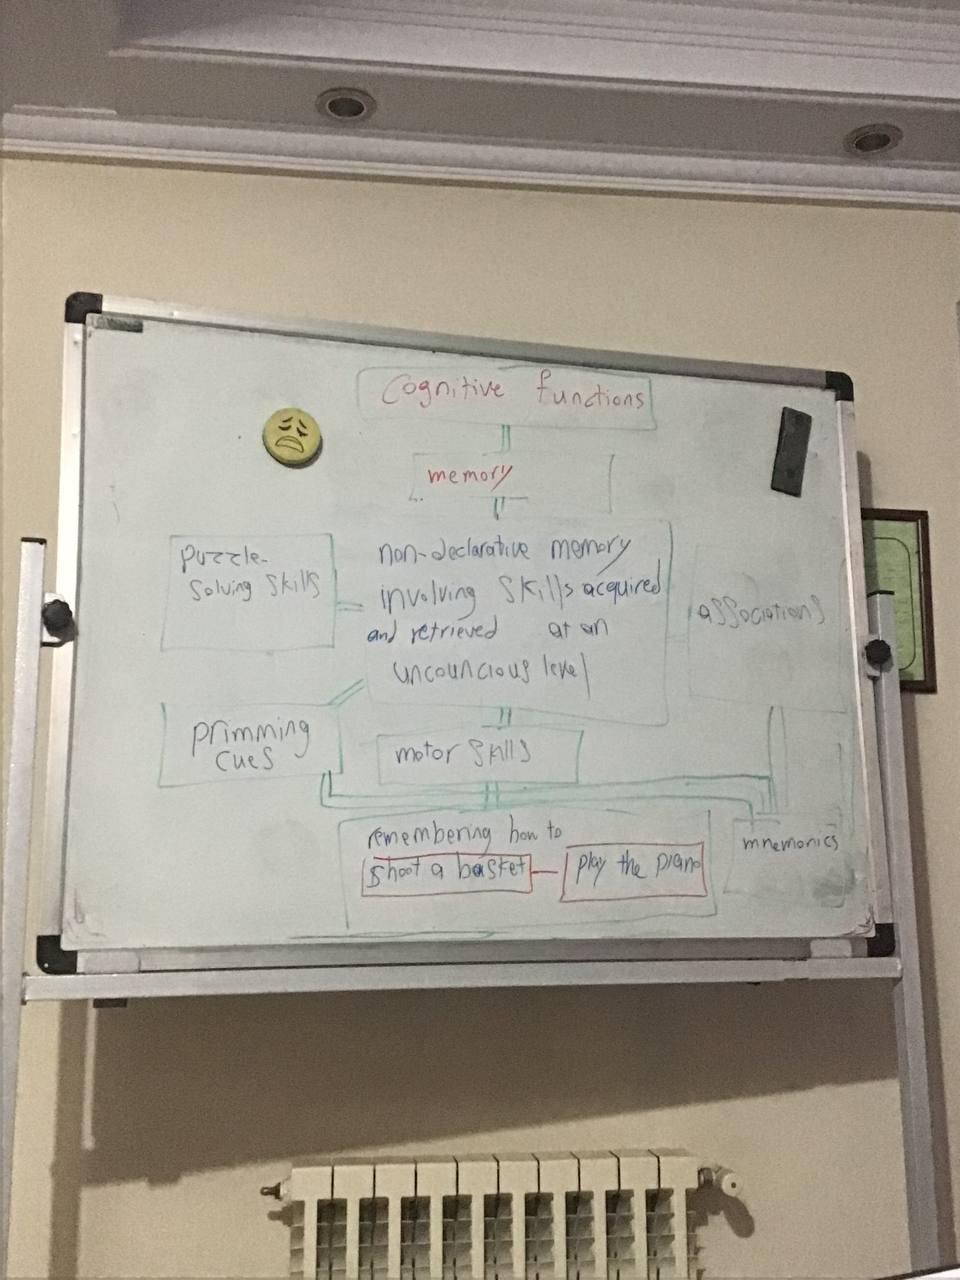 Cognitive functions
memory
Puzzle-
Solving Skills
non-declarative memory
involving skills acquired
and retrieved at an
uncouncious level
associations
primming
cues
motor skills
remembering how to
shoot a basket
play the piano
mnemonics